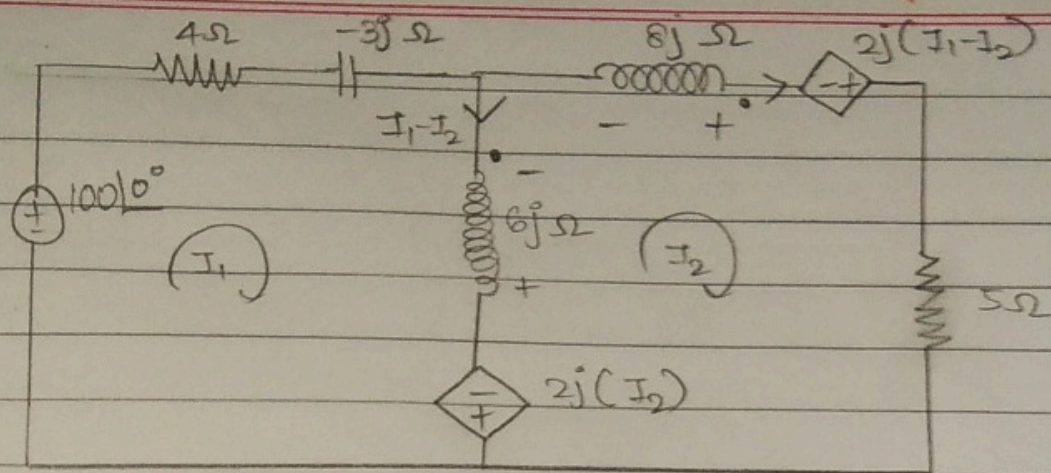 4Ω -3j Ω 8j Ω 2j(I₁-I₂)
- +
I₁-I₂ - +
-
100∠0° +
-
6jΩ
I₁ I₂
+
5Ω
- + 2j(I₂)